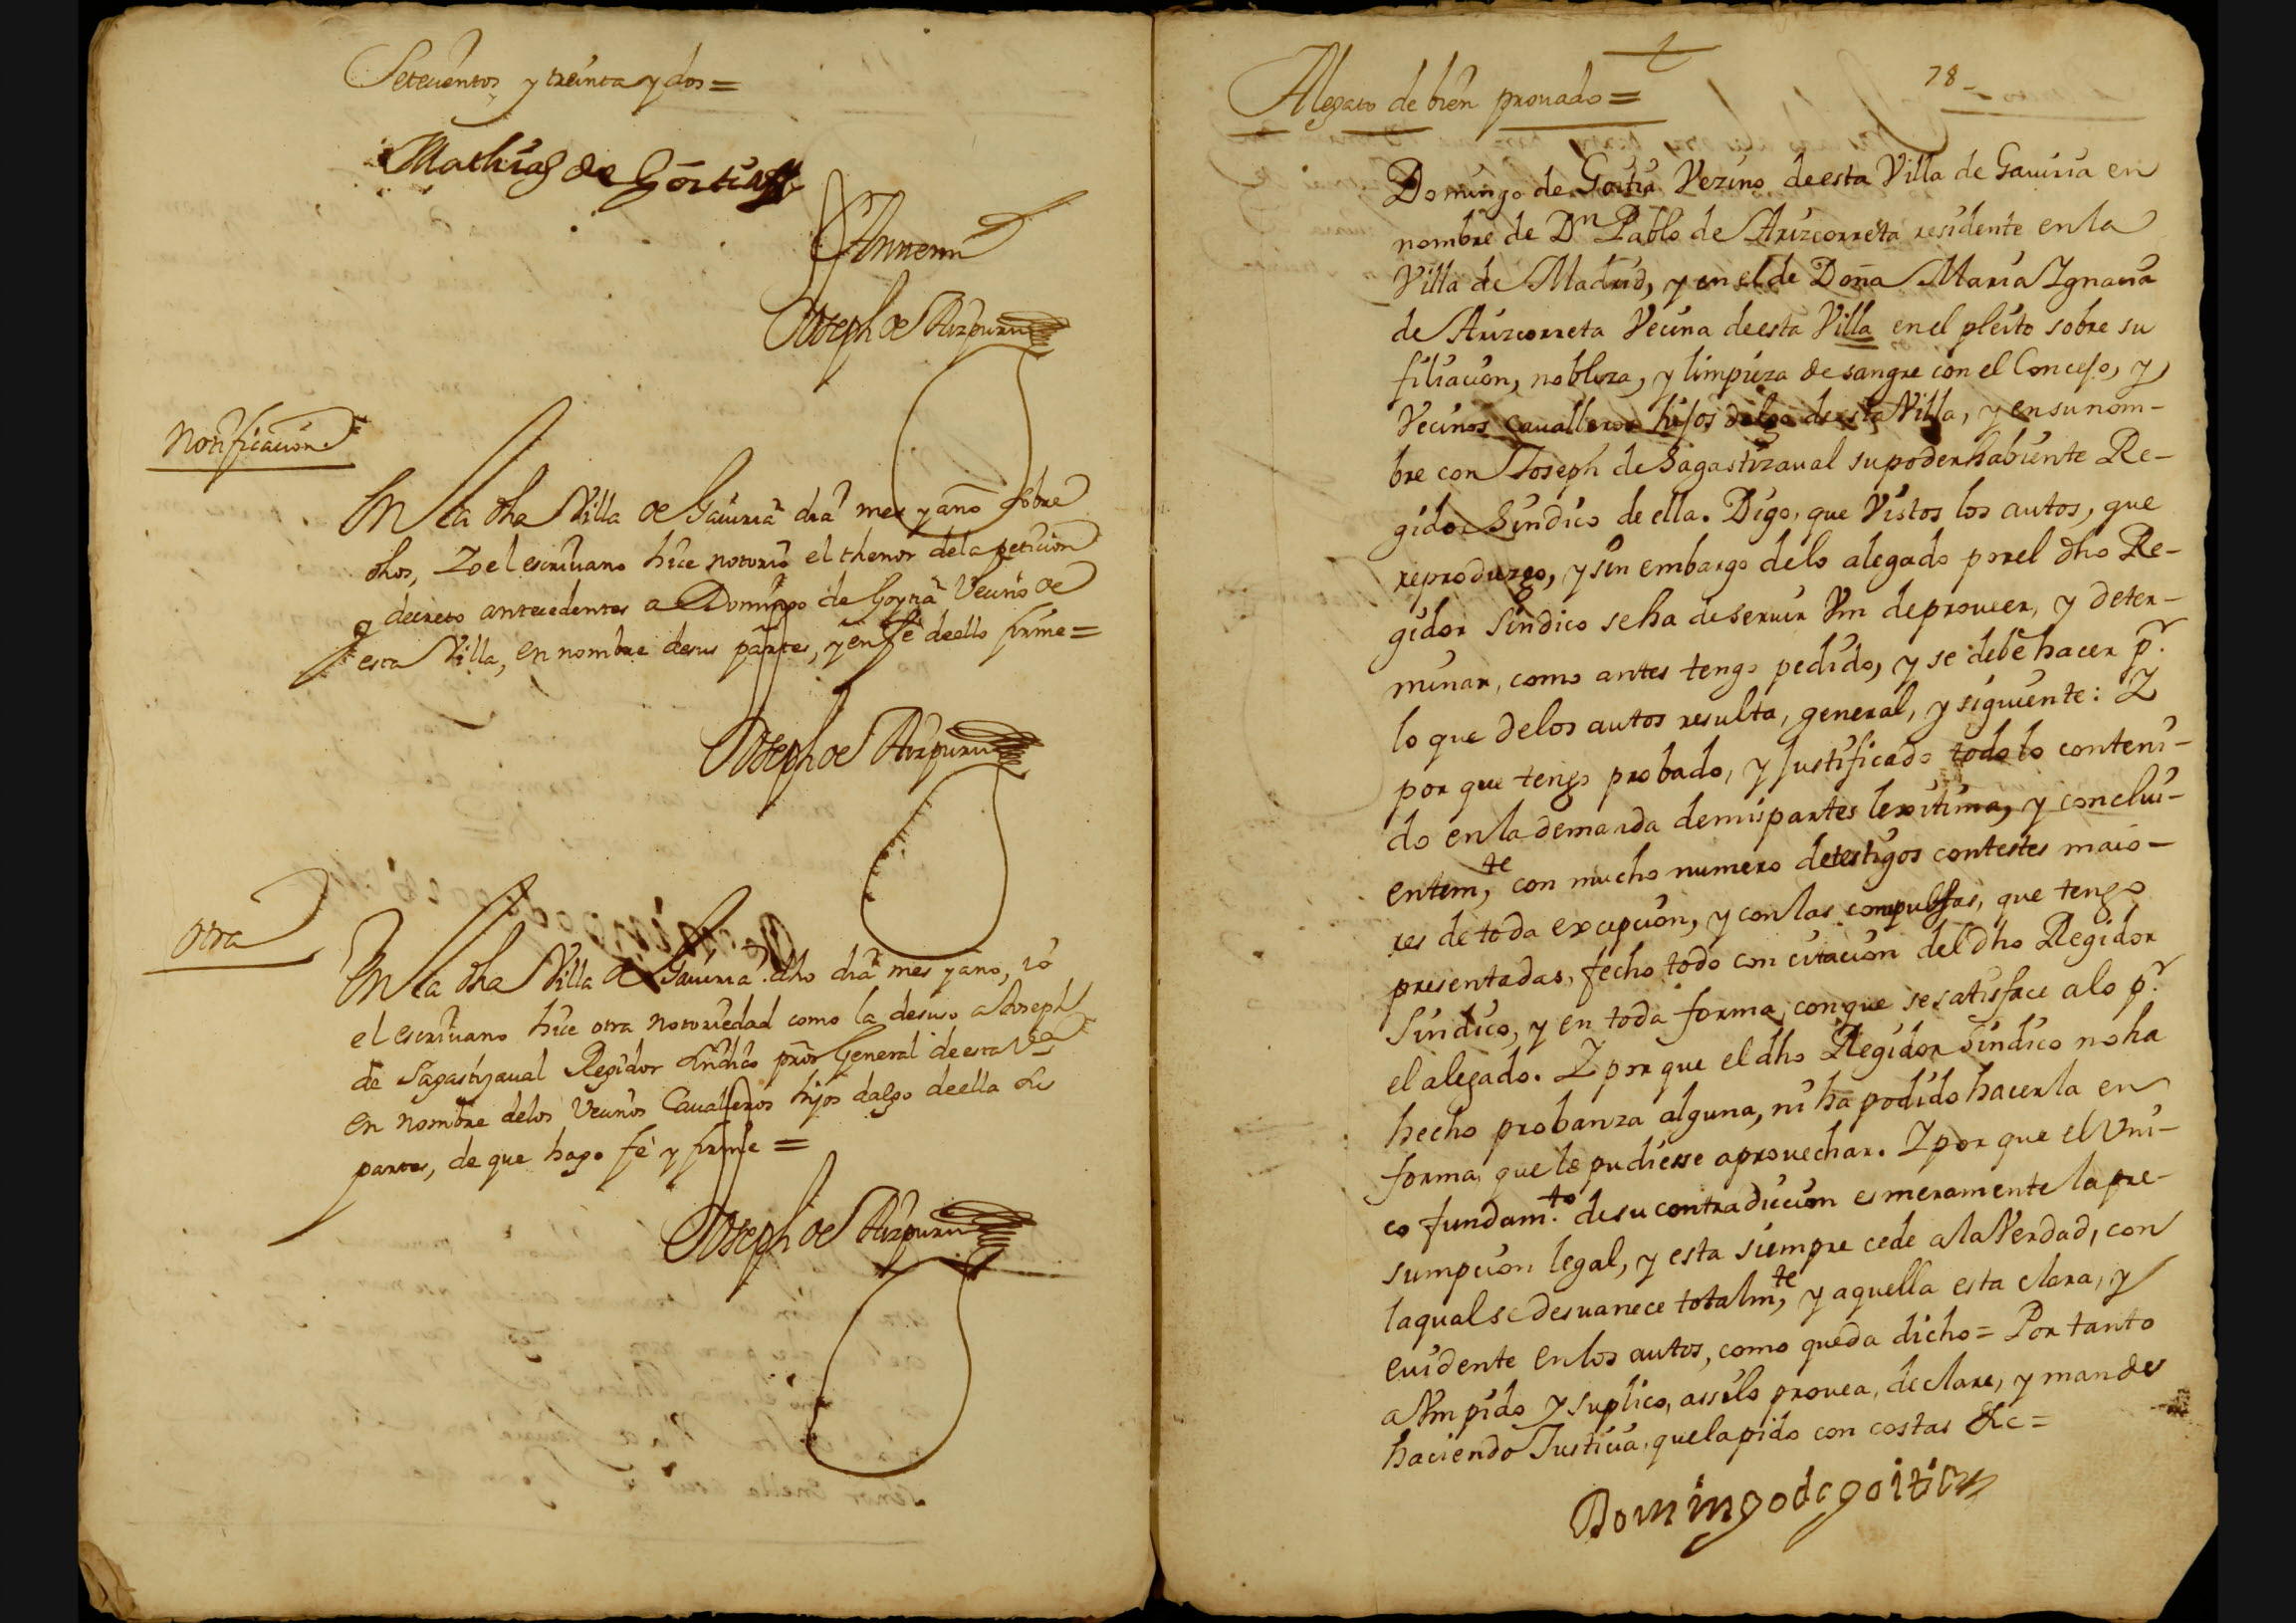 Setecientos y treinta y dos =
Mathias de Goitia
Ante mi
Joseph de Aizpuru
Notificacion
En la dha Villa de Gauiria dia mes y año sobre
dhos, Yo el escriuano hice notorio el thenor dela peticion
y decreto antecedentes a Domingo de Goytia Vecino de
esta Villa, en nombre desus partes, y en fe deello firme =
Joseph de Aizpuru
Otra
En la dha Villa de Gauiria dho dia mes y año, yo
el escriuano hice otra notoriedad como la desuso a Joseph
de Sagastizaual Regidor Sindico pror General de esta Va
en nombre delos Vecinos Caualleros hijos dalgo deella sus
partes, de que hago fe y firme =
Joseph de Aizpuru
78
Alegato de bien prouado =
Domingo de Goitia Vezino deesta Villa de Gauiria en
nombre de Dn Pablo de Arizcorreta residente en la
Villa de Madrid, y en el de Doña Maria Ygnacia
de Arizcorreta Vecina deesta Villa en el pleito sobre su
filiacion, nobleza, y limpieza de sangre con el Concejo, y
Vecinos Caualleros hijos dalgo deesta Villa, y en su nom-
bre con Joseph de Sagastizaual su poderhabiente Re-
gidor Sindico de ella. Digo, que Vistos los autos, que
reproduzgo, y sin embargo delo alegado por el dho Re-
gidor Sindico se ha de seruir Vm de proueer, y deter-
minar, como antes tengo pedido, y se debe hacer pr.
lo que delos autos resulta, general, y siguiente: Y
por que tengo probado, y justificado todo lo conteni-
do en la demanda de mis partes lexitima, y conclui-
entemte, con mucho numero de testigos contestes maio-
res de toda excepcion, y con las compulsas, que tengo
presentadas, fecho todo con citacion del dho Regidor
Sindico, y en toda forma, con que se satisface a lo pr.
el alegado. Y por que el dho Regidor Sindico no ha
hecho probanza alguna, ni ha podido hacerla en
forma, que le pudiesse aprouechar. Y por que el Vni-
co fundamto. de su contradiccion es meramente la pre-
sumpcion legal, y esta siempre cede a la Verdad, con
la qual se desuanece totalmte, y aquella esta clara, y
euidente en los autos, como queda dicho = Por tanto
a Vm pido y suplico, assi lo prouea, declare, y mande
haciendo Justicia, que la pido con costas &c =
Domingo de goitia